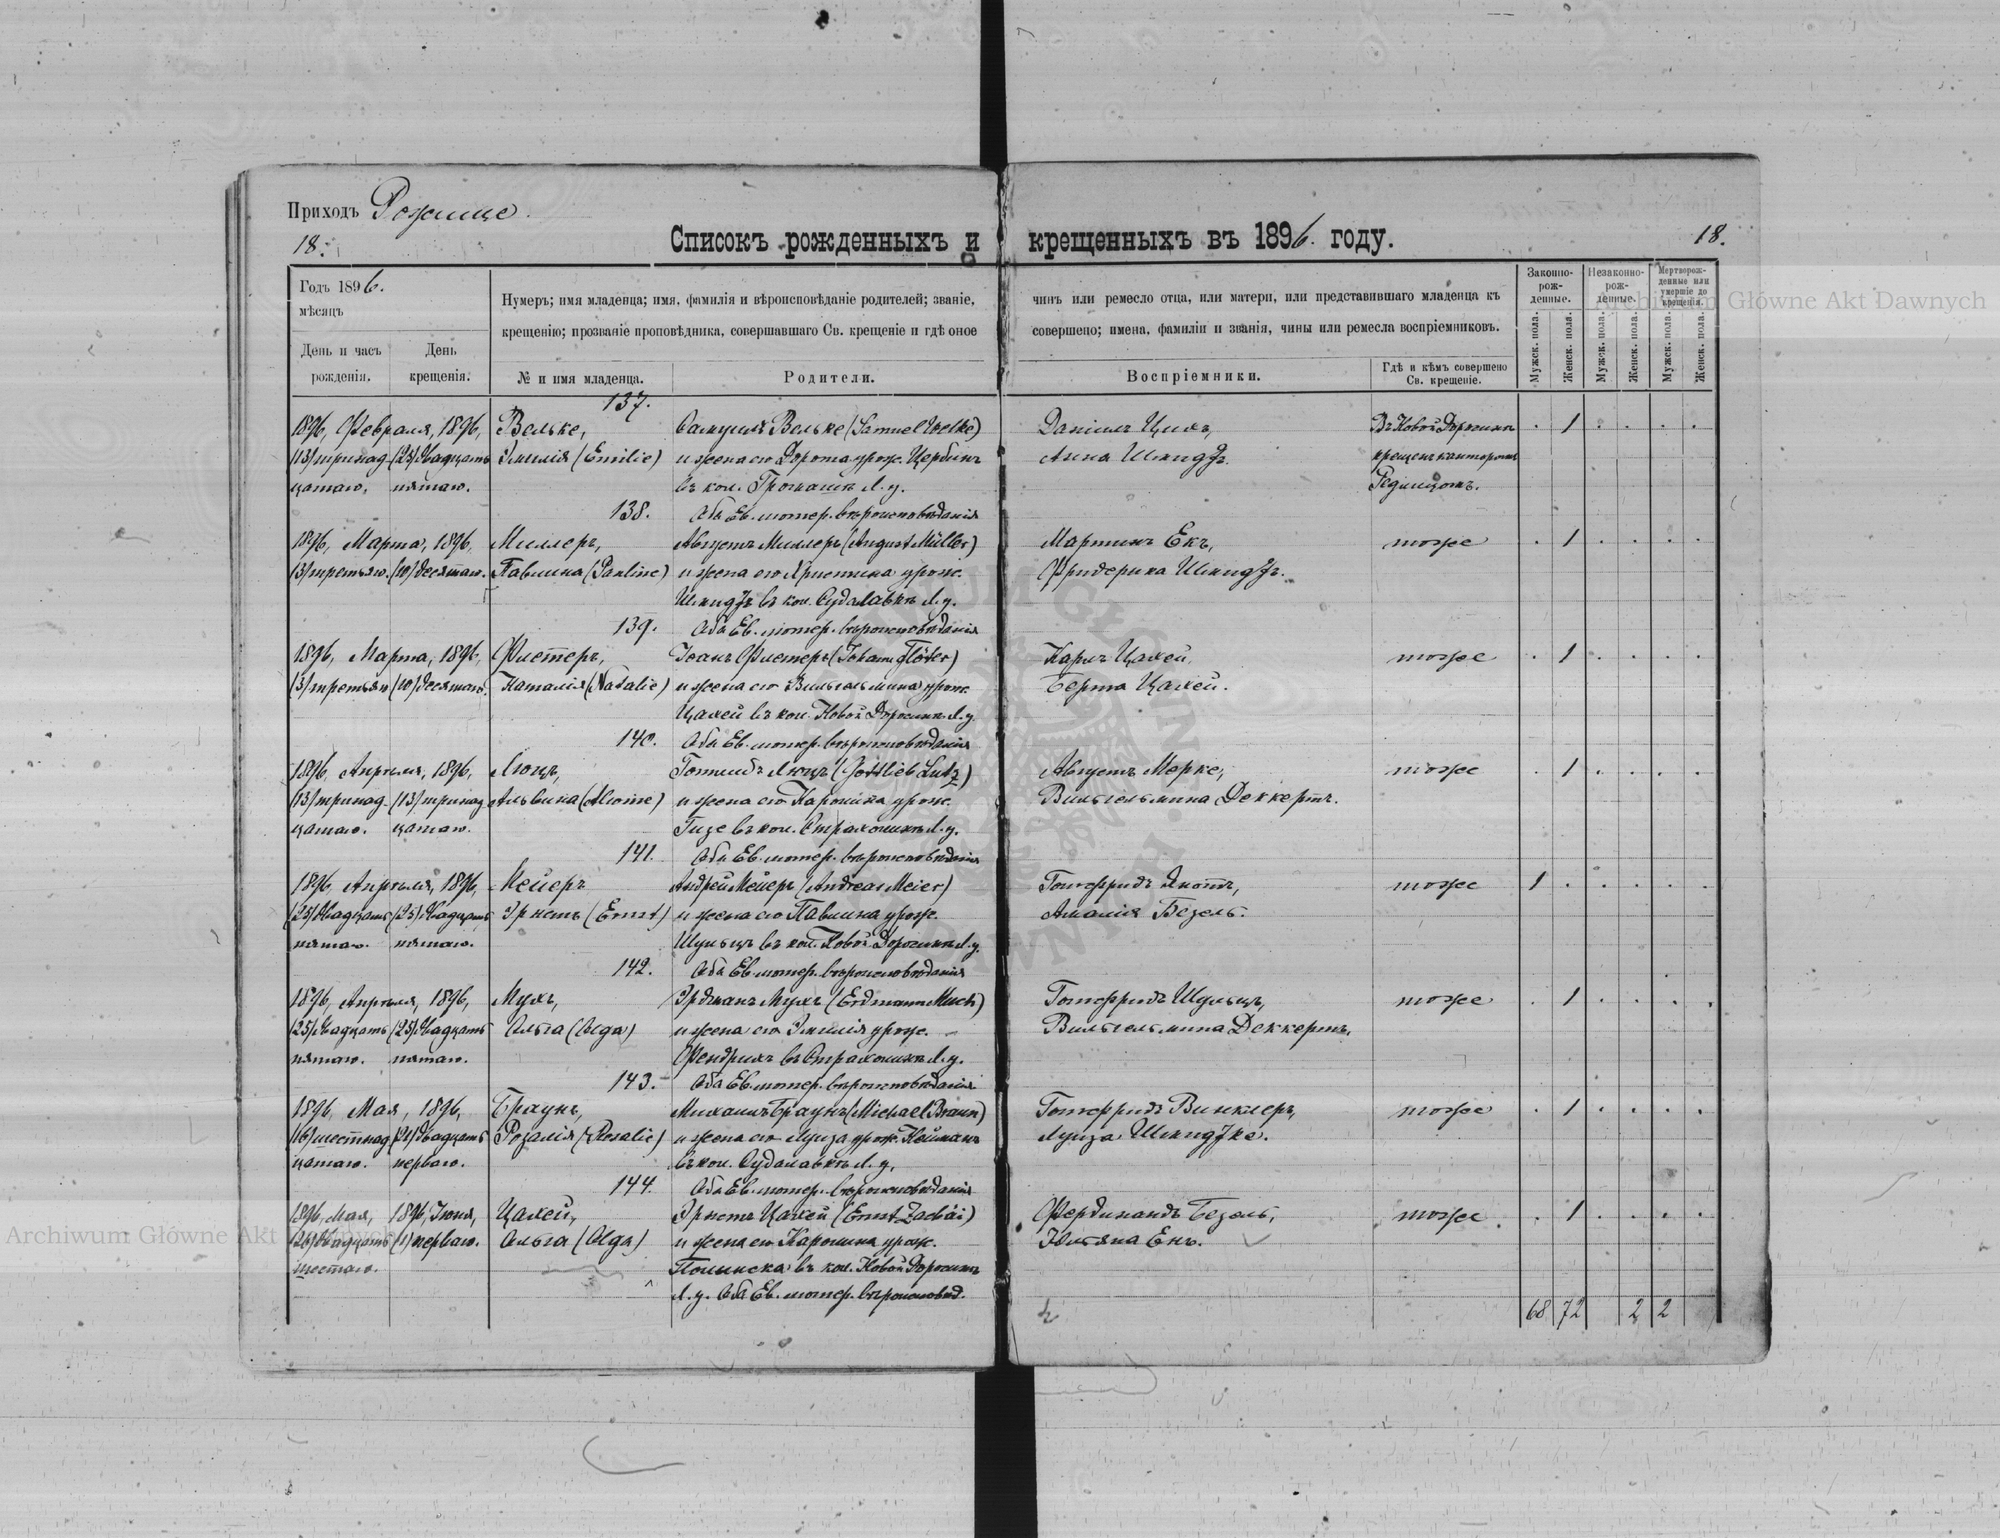 Приходъ Рожище.
18.
Списокъ рожденныхъ и крещенныхъ въ 1896. году.
18.
Годъ 1896.
мѣсяцъ
День и часъ рожденія.
День крещенія.
Нумеръ; имя младенца; имя, фамилія и вѣроисповѣданіе родителей; званіе, чинъ или ремесло отца, или матери, или представившаго младенца къ
крещенію; прозваніе проповѣдника, совершавшаго Св. крещеніе и гдѣ оное совершено; имена, фамиліи и званія, чины или ремесла воспріемниковъ.
№ и имя младенца.
Родители.
Воспріемники.
Гдѣ и кѣмъ совершено Св. крещеніе.
Законно-рож-денные.
Незаконно-рож-денные.
Мертворож-денные или умершіе до крещенія.
Мужск. пола. Женск. пола. Мужск. пола. Женск. пола. Мужск. пола. Женск. пола.
137.
1896, Февраля, 1896, Вельке, Самуилъ Вельке (Samuel Welke) Даніилъ Цихъ, Въ Новой Доросинѣ . 1 . . . .
(13) тринад- (25) двадцать Эмилія (Emilie) и жена его Дорота урож. Цербинъ Анна Шмидтъ. крещенъ канторомъ
цатаго. пятаго. въ кол. Громашъ Л. у.
138. Оба Ев. лютер. вѣроисповѣданія
1896, Марта, 1896, Миллеръ, Августъ Миллеръ (August Müller) Мартинъ Екъ, тоже . 1 . . . .
(3) третьяго. (10) десятаго. Павлина (Pauline) и жена его Христина урож. Фридерика Шмидтъ.
Шмидтъ въ кол. Судалавкѣ Л. у.
139. Оба Ев. лютер. вѣроисповѣданія
1896, Марта, 1896, Флетеръ, Іоанъ Флетеръ (Johann Flöter) Карлъ Цахей, тоже . 1 . . . .
(3) третьяго (10) десятаго. Наталія (Natalie) и жена его Вильгельмина урож. Берта Цахей.
Цахей въ кол. Новой Доросинѣ Л. у.
140. Оба Ев. лютер. вѣроисповѣданія
1896, Апрѣля, 1896, Люцъ, Готлибъ Люцъ (Gottlieb Lutz) Августъ Мерке, тоже . 1 . . . .
(13) тринад- (13) тринад- Альвина (Alwine) и жена его Каролина урож. Вильгельмина Деккертъ.
цатаго. цатаго. Гизе въ кол. Страхолинѣ Л. у.
141. Оба Ев. лютер. вѣроисповѣданія
1896, Апрѣля, 1896, Мейеръ Андрей Мейеръ (Andreas Meier) Готфридъ Якотъ, тоже 1 . . . . .
(25) двадцать (25) двадцать Эрнстъ (Ernst) и жена его Павлина урож. Амалія Безель.
пятаго. пятаго. Шульцъ въ кол. Новой Доросинѣ Л. у.
142. Оба Ев. лютер. вѣроисповѣданія
1896, Апрѣля, 1896, Мухъ, Эрдманъ Мухъ (Erdmann Much) Готфридъ Шульцъ, тоже . 1 . . . .
(25) двадцать (25) двадцать Ольга (Olga) и жена его Эмилія урож. Вильгельмина Деккертъ.
пятаго. пятаго. Фендрихъ въ Страхолинѣ Л. у.
143. Оба Ев. лютер. вѣроисповѣданія
1896, Мая, 1896, Браунъ, Михаилъ Браунъ (Michael Braun) Готфридъ Винклеръ, тоже . 1 . . . .
(16) шестнад- (21) двадцать Розалія (Rosalie) и жена его Луиза урож. Нейманъ Луиза Шмидтке.
цатаго. перваго. въ кол. Судалавкѣ Л. у.
144. Оба Ев. лютер. вѣроисповѣданія
1896, Мая, 1896, Іюня, Цахей, Эрнстъ Цахей (Ernst Zachäi) Фердинандъ Безель, тоже . 1 . . . .
(26) двадцать (1) перваго. Ольга (Olga) и жена его Каролина урож. Юльяна Екъ.
шестаго. въ кол. Новой Доросинѣ
Л. у. Оба Ев. лютер. вѣроисповѣд.
68 72 2 2
Archiwum Główne Akt Dawnych
Archiwum Główne Akt Dawnych